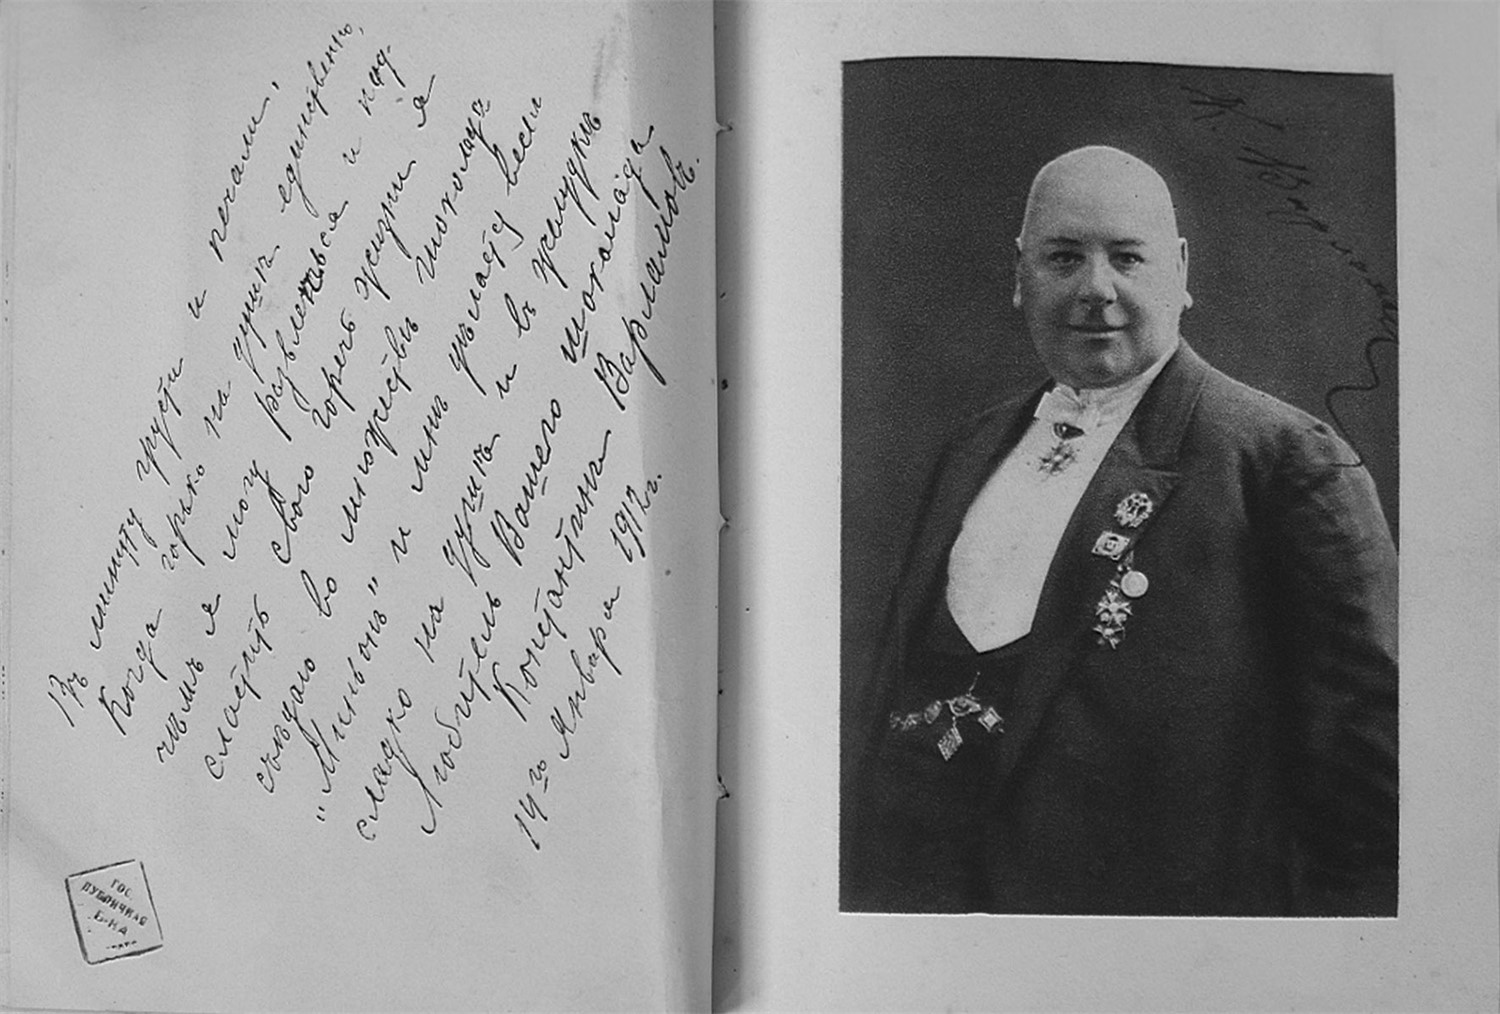 Въ минуту грусти и печали,
Когда горько на душѣ единственно,
чѣмъ я могу развлечься и под-
сластить свою горечь жизни я
съѣдаю во множествѣ шоколадъ
"Миньонъ" и мнѣ
сладко на душѣ и въ желудкѣ
Любитель Вашего шоколада
Константинъ Варламовъ.
14го Января 1912 г.
ГОС.
ПУБЛИЧНАЯ
Б-КА
К. Варламов